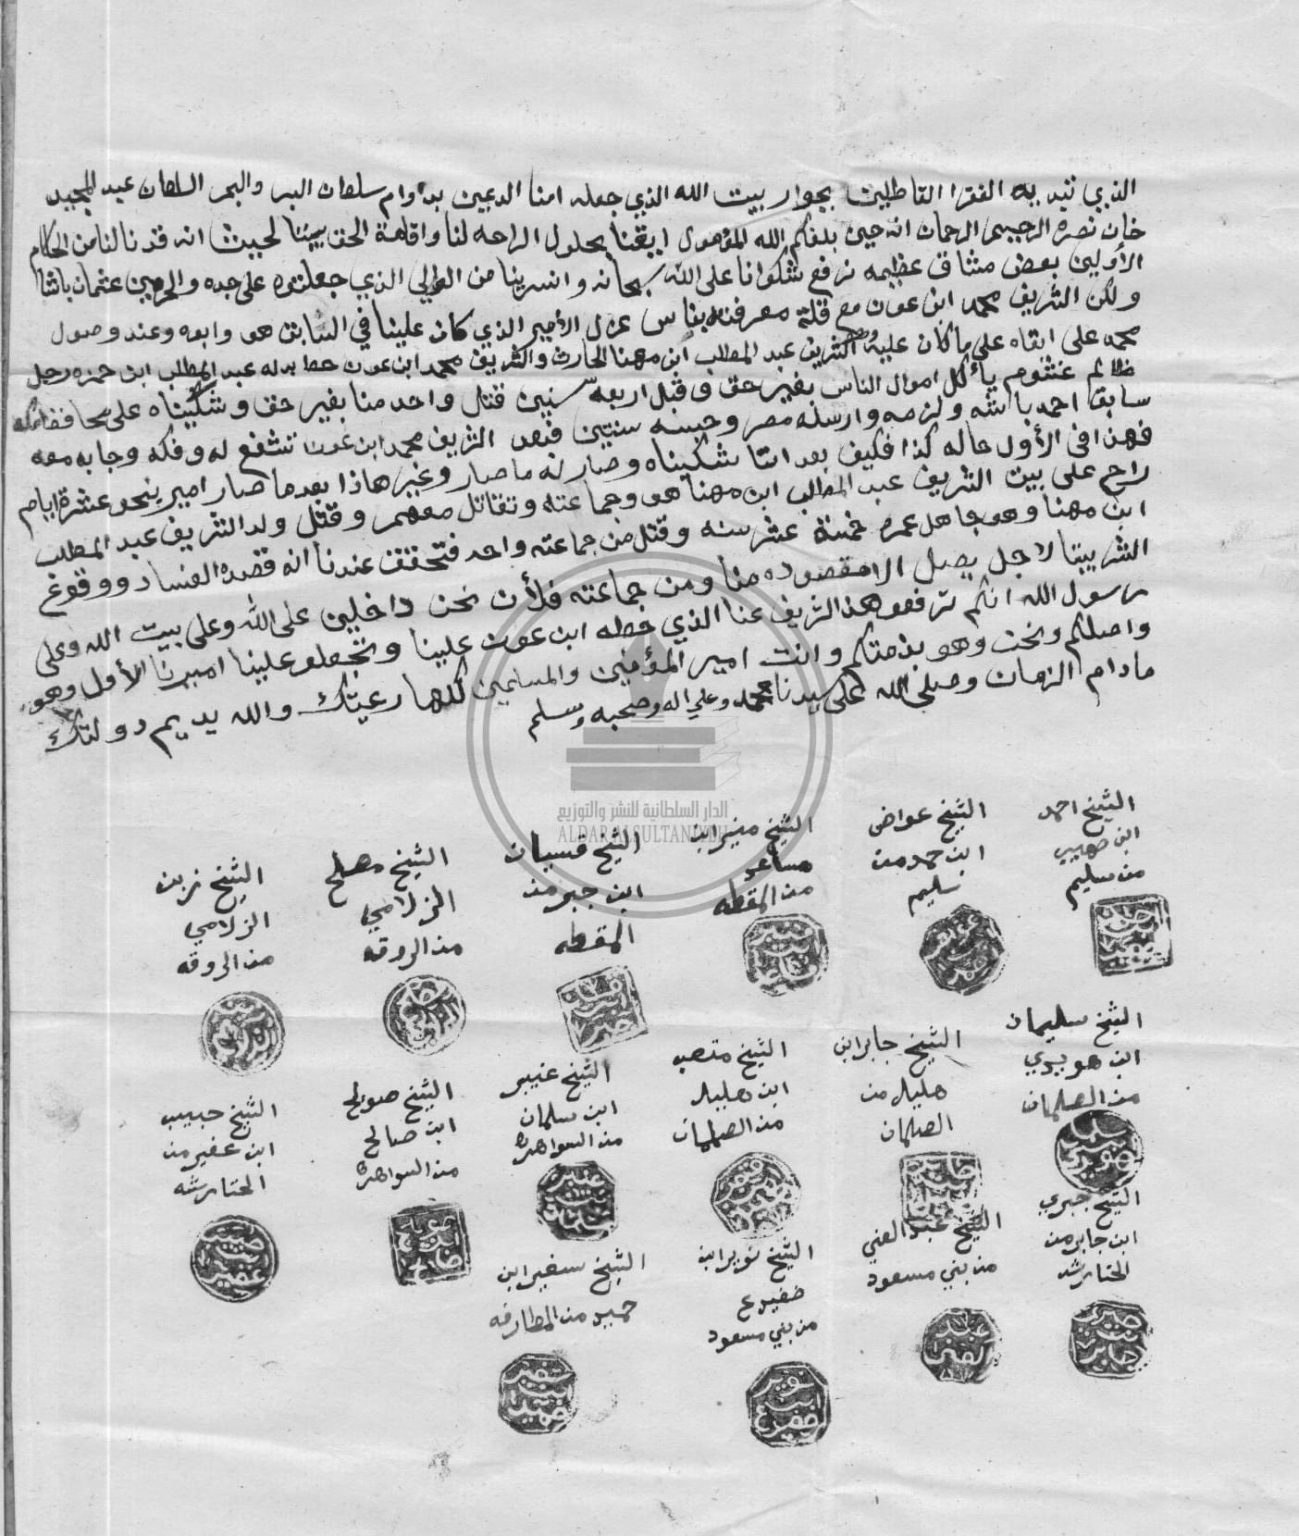 الذي تيد به الفقرا القاطلين بجوار بيت الله الذي جعله امنا الدعين بداوام سلطان البر والبحر السلطان عبد المجيد
خان نصره الرحيم الرحمان انه حين بلغكم الله المؤصول ايقنا بحلول الراحه لنا واقامة الحق بيننا لحيث انه قد نالنا من الحكام
الأولين بعض مشاق عظيمه نرفع شكوانا على الله سبحانه وانسرينا من الوالي الذي جعلتوه على جده والحرمين عثمان باشا
ولكن الشريف محمد ابن عون مع قلة معرفته بناس عزل الأمير الذي كان علينا في السابق هو وابوه وعند وصول
محمد على ابقاه على ما كان عليه الشريف عبد المطلب ابن مهنا الحارث والشريف محمد ابن عون حط بدله عبد المطلب ابن حمزه رجل
ظالم غشوم يأكل اموال الناس بغير حق وقبل اربعة سنين قتل واحد منا بغير حق وشكيناه على محافظ مكه
سابقا احمد باشه ولزمه وارسله مصر وحبسه سنتين فبعد الشريف محمد ابن عون تشفع له وفكه وجابه معه
فهذا في الأول حاله كذا فكيف بعد اننا شكيناه وصار له ما صار وغير هاذا بعد ما صار امير بنحو عشرة ايام
راح على بيت الشريف عبد المطلب ابن مهنا هو وجماعته وتقاتل معهم وقتل ولد الشريف عبد المطلب
ابن مهنا وهو جاهل عمره خمسة عشر سنه وقتل من جماعته واحد فتحقق عندنا انه قصده الفساد ووقوع
الشر بيننا لاجل يصل الا مقصوده منا ومن جماعته فلأن نحن داخلين على الله وعلى بيت الله وعلى
رسول الله انكم ترفعو هذا الشريف عنا الذي حطه ابن عون علينا وتجعلو علينا اميرنا الأول وهو
واصلكم ونحن وهو بذمتكم وانت امير المؤمنين والمسلمين كلها رعيتك والله يديم دولتك
مادام الزمان وصلى الله على سيدنا محمد وعلي اله وصحبه وسلم
الدار السلطانية للنشر والتوزيع
ALDAR ALSULTANIYEH
الشيخ احمد
ابن صهيبي
من سليم
الشيخ عواض
ابن حمد من
سليم
الشيخ منير ابن
مساعد
من المقطه
الشيخ قسيان
ابن جبر من
المقطه
الشيخ مصلح
الزلامي
من الروقه
الشيخ زبن
الزلامي
من الروقه
الشيخ سليمان
ابن هويدي
من الصلمان
الشيخ جابر ابن
هليل من
الصلمان
الشيخ متعب
ابن هليل
من الصلمان
الشيخ عنيبر
ابن سلمان
من السواهره
الشيخ صويلح
ابن صالح
من السواهره
الشيخ حبيب
ابن عفير من
الحنارشه
الشيخ جبري
ابن جابر من
الحنارشه
الشيخ عبد الغني
من بني مسعود
الشيخ نوير ابن
ضفيدع
من بني مسعود
الشيخ سفير ابن
حميد من المطارفه